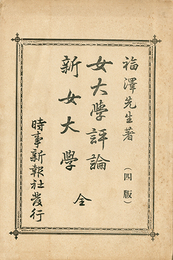 福澤先生著
（四版）
女大学評論
新女大学
全
時事新報社発行